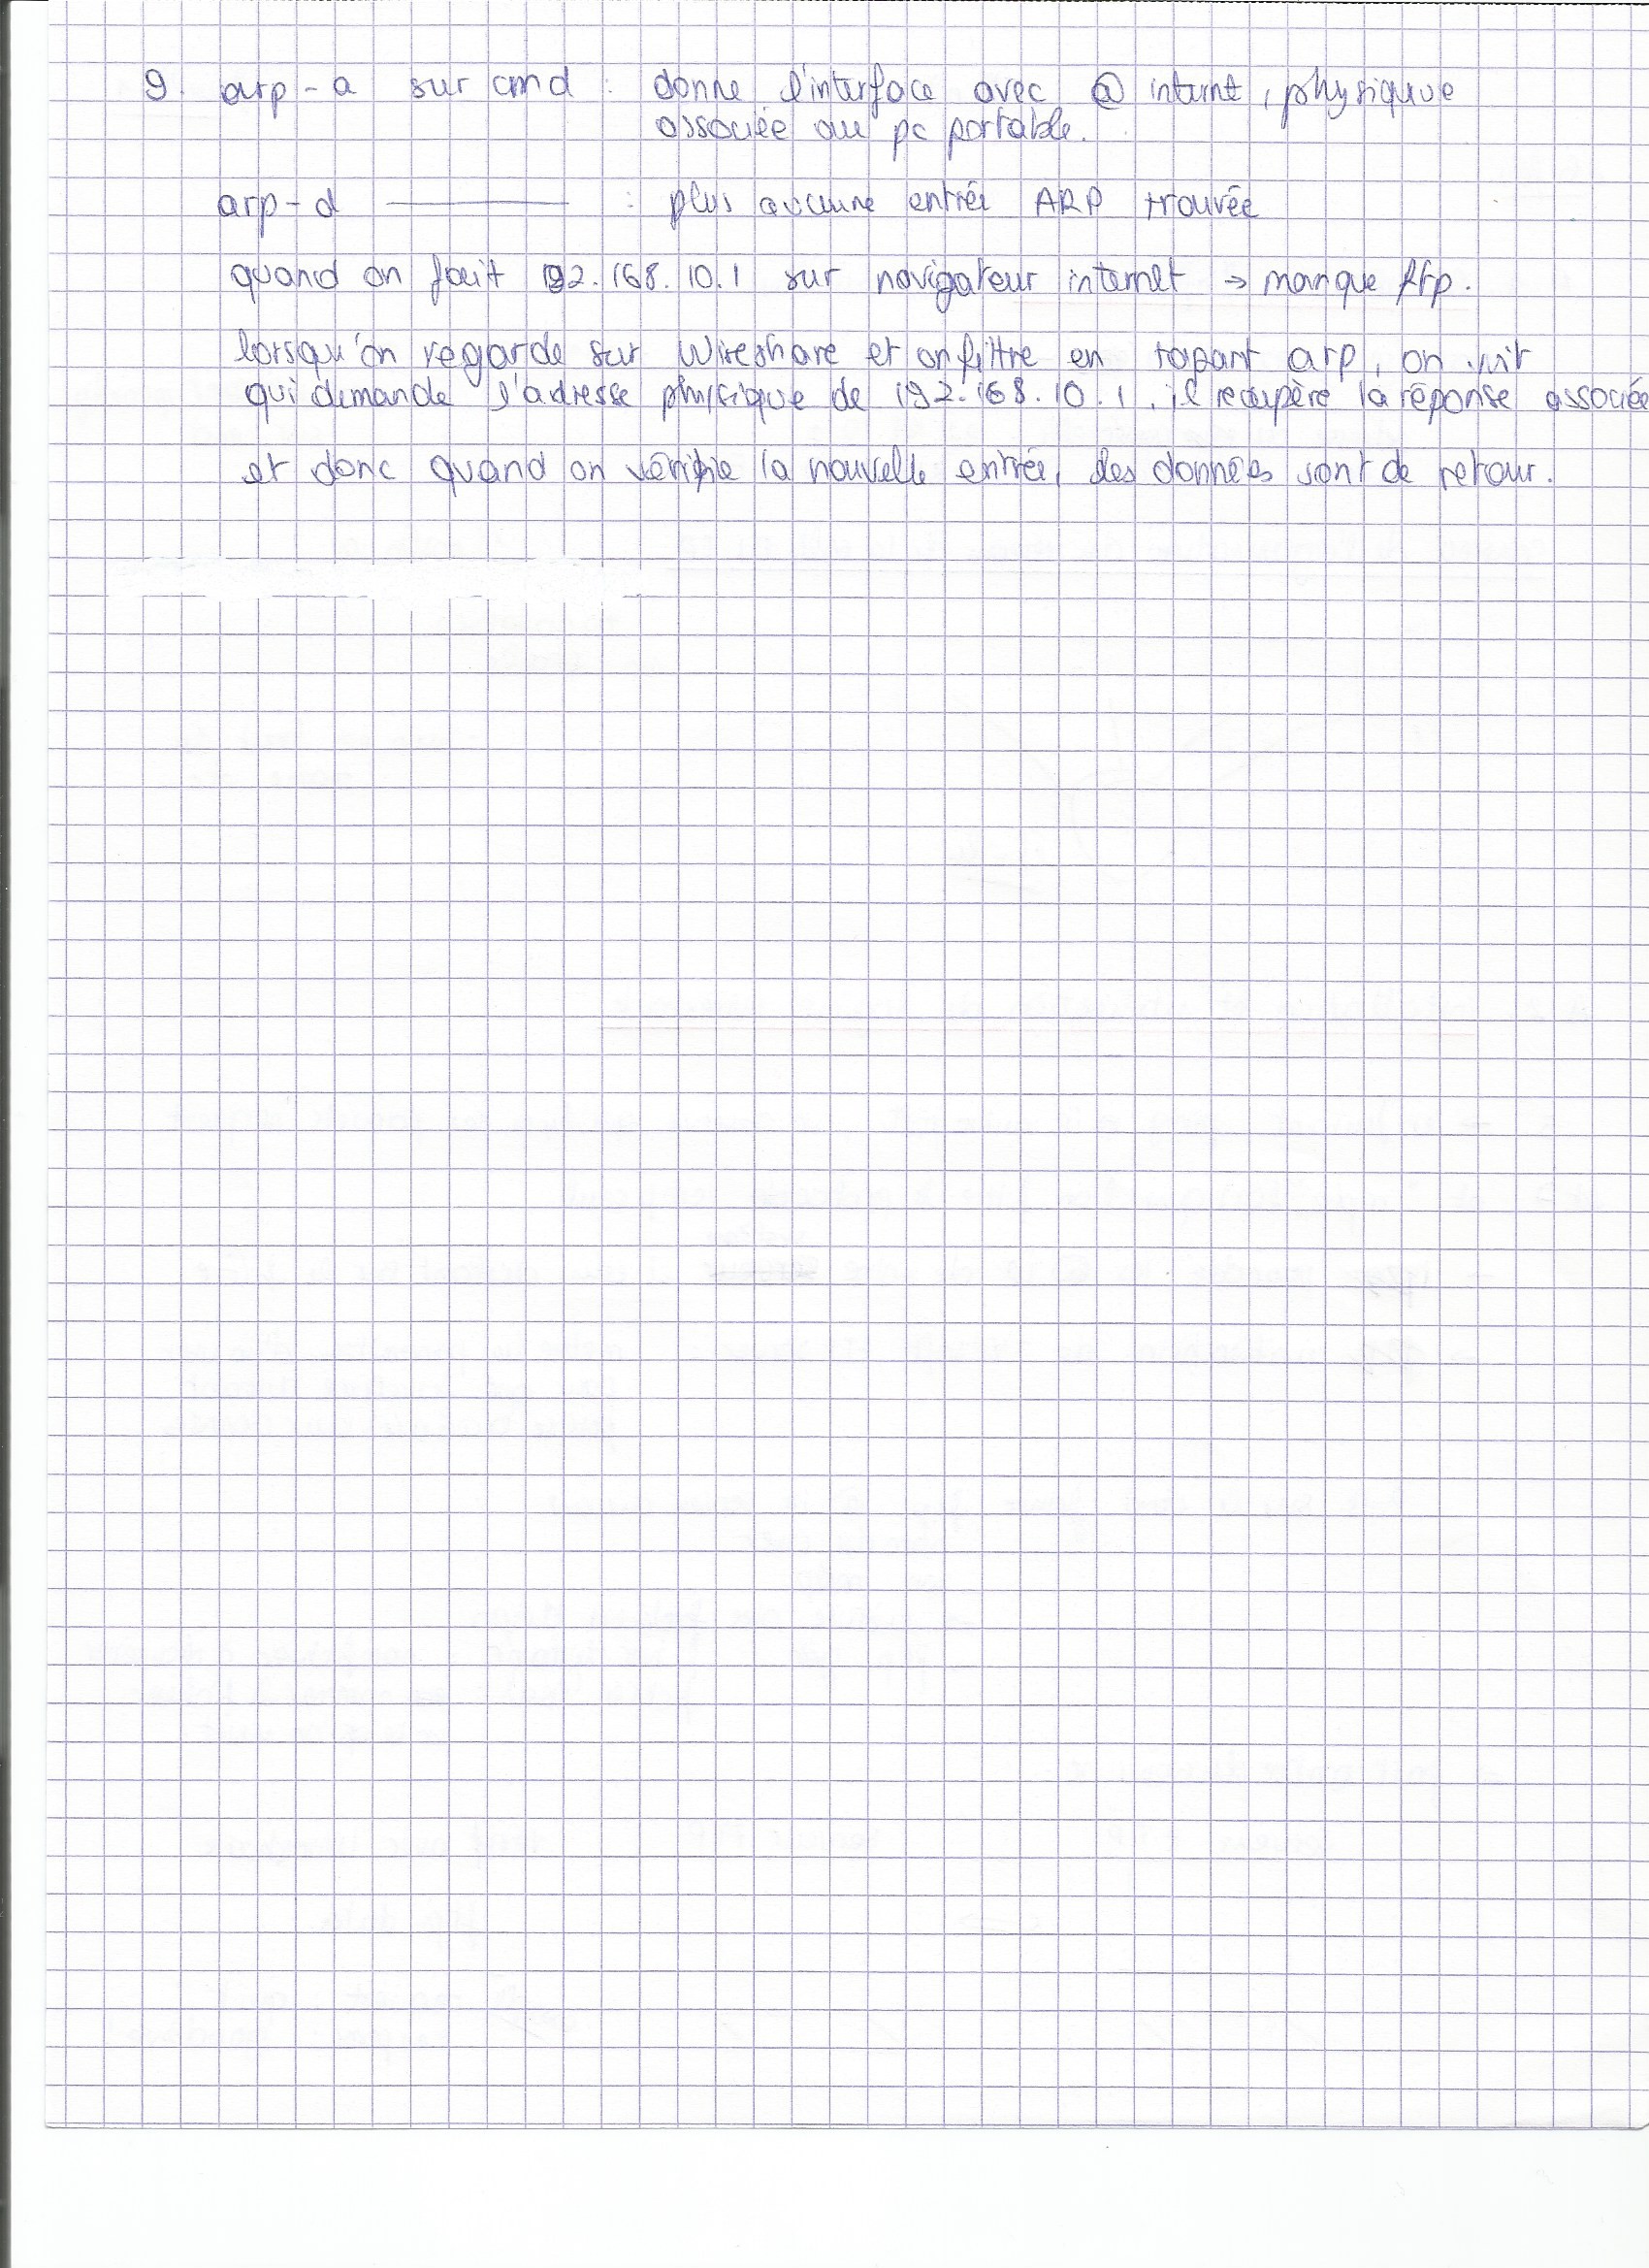 9. arp-a sur cmd : donne l'interface avec @ internet, physique
associée au pc portable.
arp-d ——— : plus aucune entrée ARP trouvée
quand on fait 192.168.10.1 sur navigateur internet → manque
lorsqu'on regarde sur Wireshare et on filtre en tapant arp, on voit
qui demande l'adresse physique de 192.168.10.1, il recupère la réponse associée
et donc quand on vérifie la nouvelle entrée, des données sont de retour.